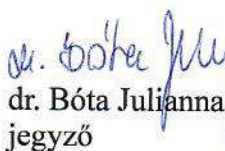 dr. Bóta Ju
dr. Bóta Julianna
jegyző